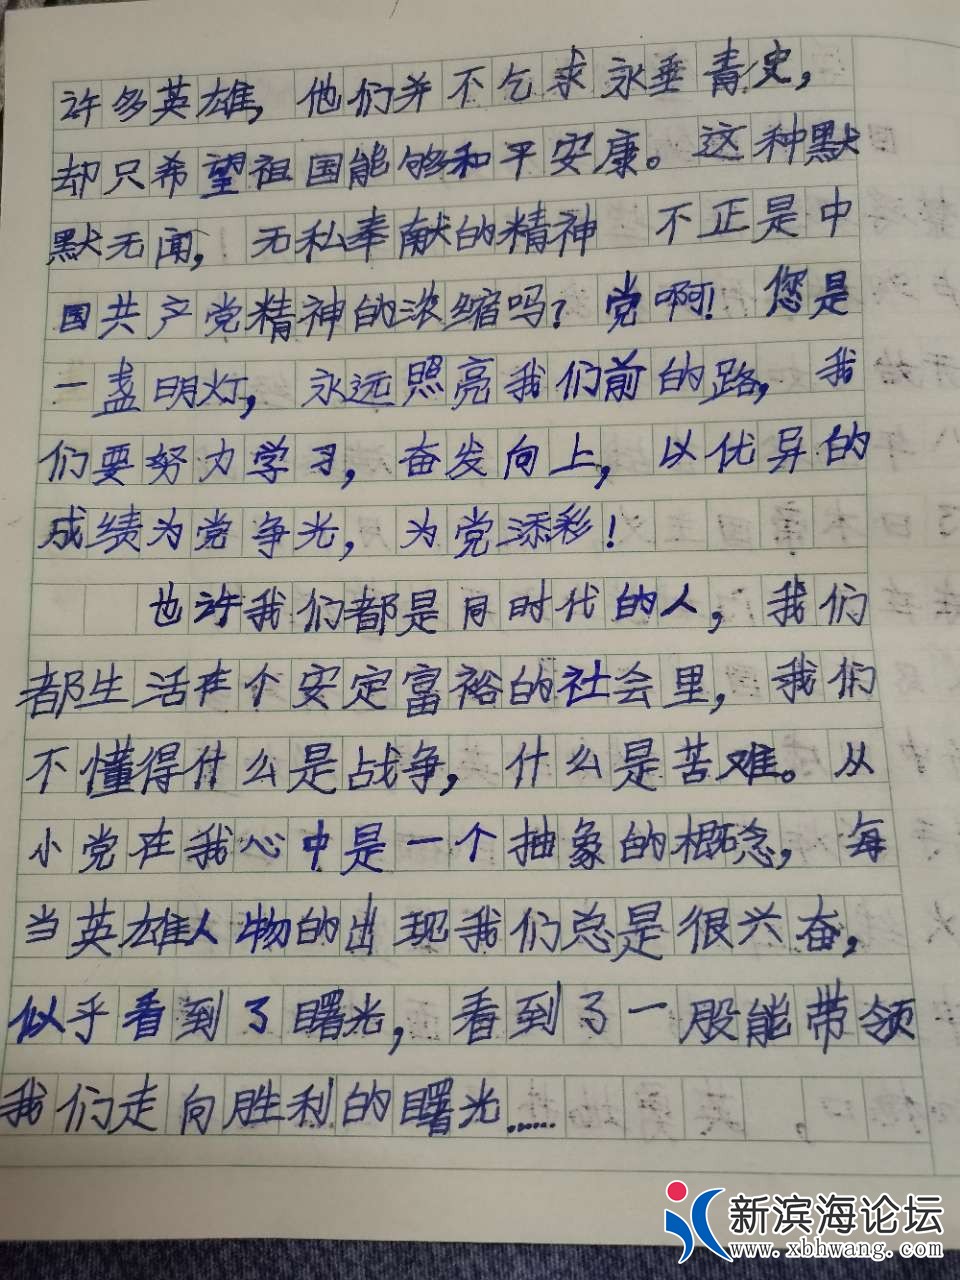 许多英雄，他们并不乞求永垂青史，
却只希望祖国能够和平安康。这种默
默无闻，无私奉献的精神 不正是中
国共产党精神的浓缩吗？党啊！您是
一盏明灯，永远照亮我们前的路，我
们要努力学习，奋发向上，以优异的
成绩为党争光，为党添彩！
也许我们都是同时代的人，我们
都生活在个安定富裕的社会里，我们
不懂得什么是战争，什么是苦难。从
小党在我心中是一个抽象的概念，每
当英雄人物的出现我们总是很兴奋，
似乎看到了曙光，看到了一股能带领
我们走向胜利的曙光……
新滨海论坛
www.xbhwang.com